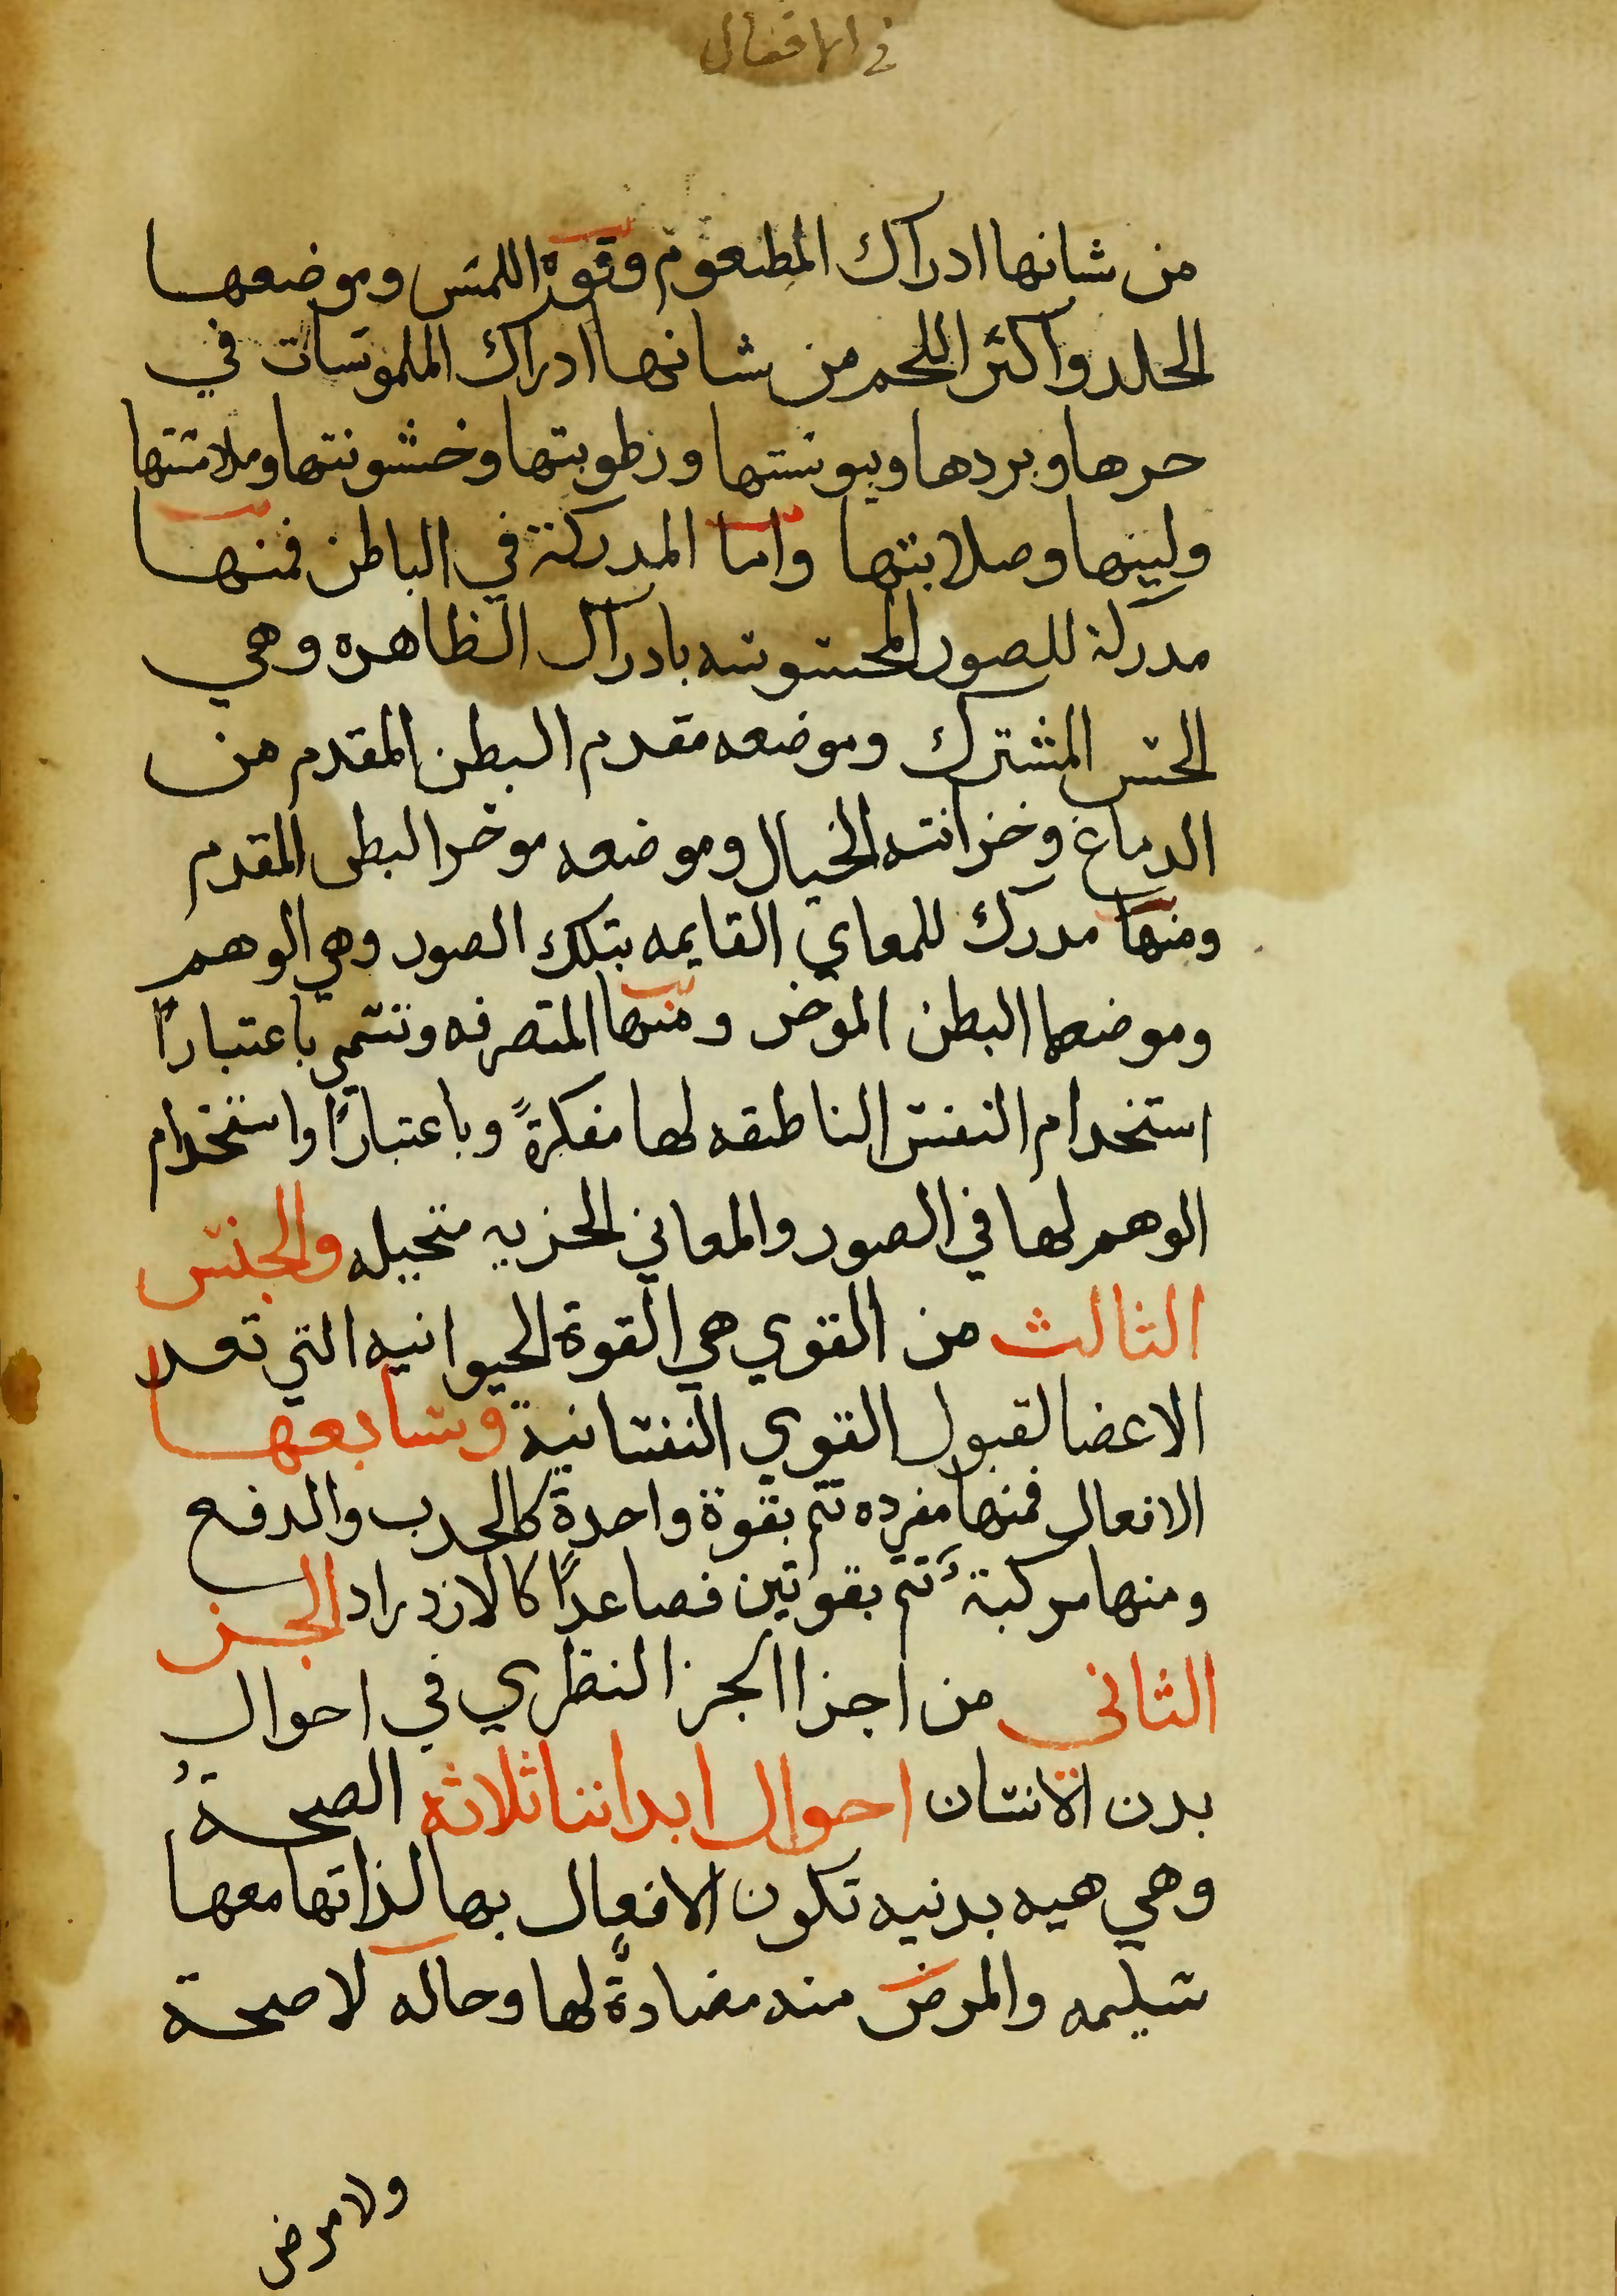 في الافعال
من شانها ادراك المطعوم وقوة اللمس وموضعها
الجلد واكثر اللحم من شانها ادراك الملموسات في
حرها وبردها ويبوستها ورطوبتها وخشونتها وملاستها
ولينها وصلابتها واما المدركة في الباطن فمنها
مدركة للصور المحسوسه بادراك الظاهره وهي
الحس المشترك وموضعه مقدم البطن المقدم من
الدماغ وخزانته الخيال وموضعه موخر البطن المقدم
ومنها مدرك للمعاني القايمه بتلك الصور وهي الوهم
وموضعها البطن الموخر ومنها المتصرفه وتسمي باعتبارًا
استخدام النفس الناطقه لها مفكرةً وباعتبارًا واستخدام
الوهم لها في الصور والمعاني الجزيه متخيله والجنس
الثالث من القوي هي القوة الحيوانيه التي تعد
الاعضا لقبول القوي النفسانية وسابعها
الافعال فمنها مفرده تتم بقوة واحدة كالجدب والدفع
ومنها مركبة تتم بقوتين فصاعدًا كالازدراد الجز
الثاني من اجزا الجز النظري في احوال
بدن الانسان احوال ابداننا ثلاثه الصحةُ
وهي هيه بدنيه تكون الافعال بها لذاتها معها
سليمه والمرض منه مضادةً لها وحاله لا صحة
ولا مرض